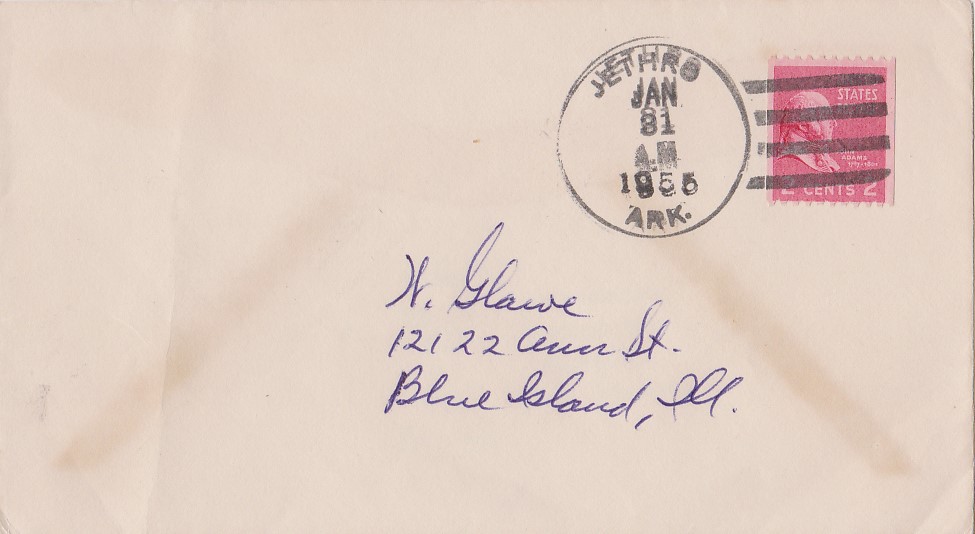 JETHRO
JAN
31
A.M.
1955
ARK.
STATES
ADAMS
2 CENTS 2
W. Glawe
12122 Ann St.
Blue Island, Ill.